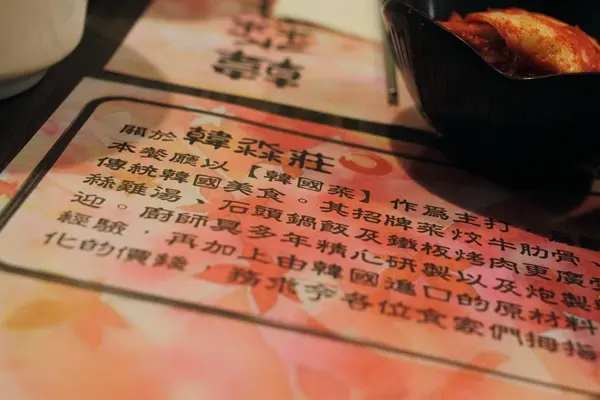 關於韓淼莊
本餐廳以【韓國菜】作爲主打,
傳統韓國美食。其招牌菜炆牛肋骨
絲雞湯,石頭鍋飯及鐵板烤肉更廣
迎。廚師具多年精心研製以及炮製
經驗,再加上由韓國進口的原材料
化的價錢,務求令各位食家們拇指